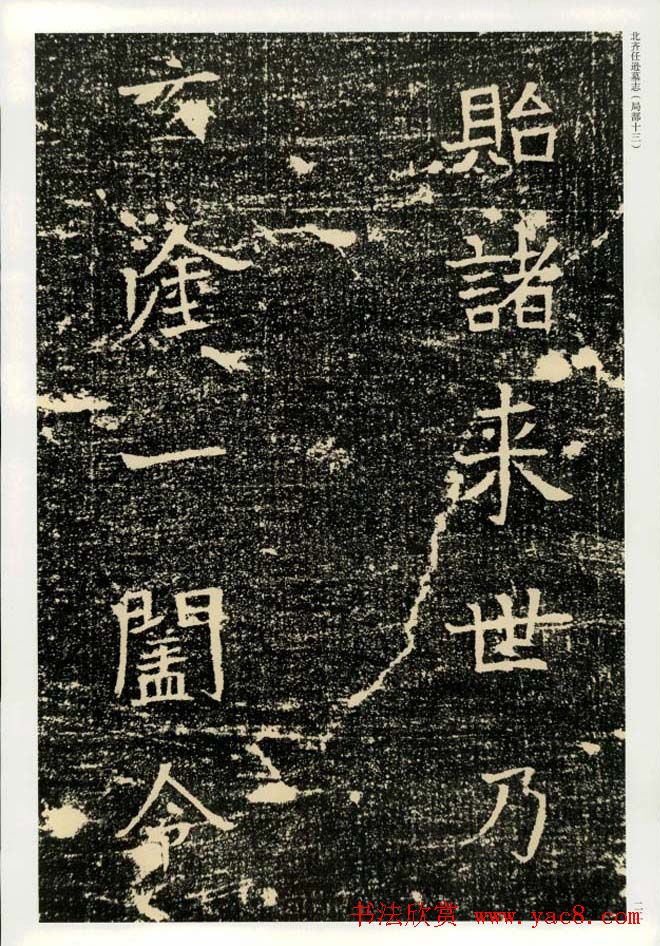 北齐任逊墓志（局部十三）
貽諸来世乃
玄塗一闔令
书法欣赏 www.yac8.com